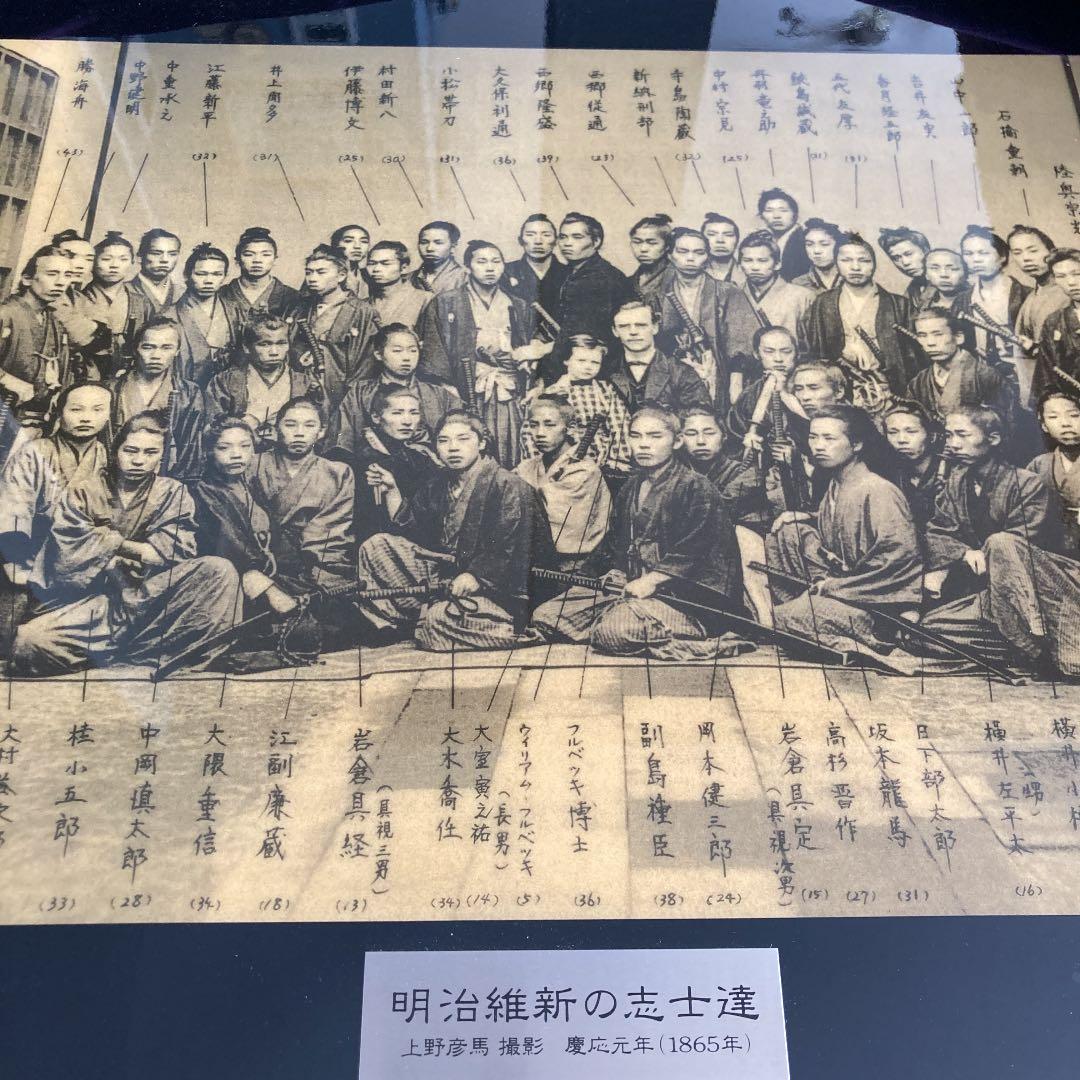 勝海舟
(43)
中野健明
中重永之
江藤新平
(32)
井上聞多
(31)
伊藤博文
(25)
村田新八
(30)
小松帯刀
(31)
大久保利通
(36)
西郷隆盛
(39)
西郷従通
(23)
新納刑部
寺島陶蔵
(32)
中村宗見
(25)
鮫島誠蔵
(21)
五代友厚
(31)
吉井友実
石橋重朝
桂小五郎
(33)
中岡慎太郎
(28)
大隈重信
(34)
江副廉蔵
(18)
岩倉具経
(具視三男)
(13)
大木喬任
(34)
大室寅之祐
(14)
ウィリアム・フルベッキ
(長男)
(5)
フルベッキ博士
(36)
副島種臣
(38)
岡本健三郎
(24)
岩倉具定
(具視次男)
(15)
高杉晋作
(27)
坂本龍馬
(31)
日下部太郎
横井左平太
(甥)
(16)
明治維新の志士達
上野彦馬 撮影 慶応元年(1865年)